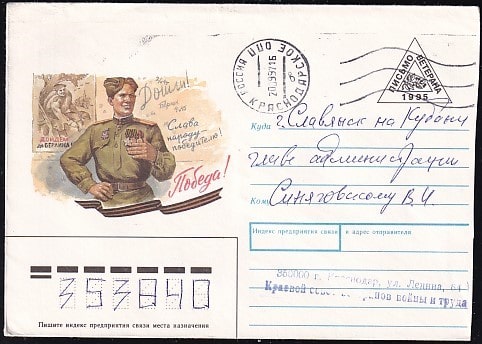 Дошли!
Слава
народу-
победителю!
ДОЙДЕМ
ДО БЕРЛИНА!
Победа!
РОССИЯ КРАСНОДАРСКОЕ ОПП
ПИСЬМО ВЕТЕРАНА
1995
Куда г. Славянск на Кубани
главе администрации
Кому Синяговскому В. И.
Индекс предприятия связи и адрес отправителя
350000 г. Краснодар, ул. Ленина,
Краевой совет войны и труда
353840
Пишите индекс предприятия связи места назначения